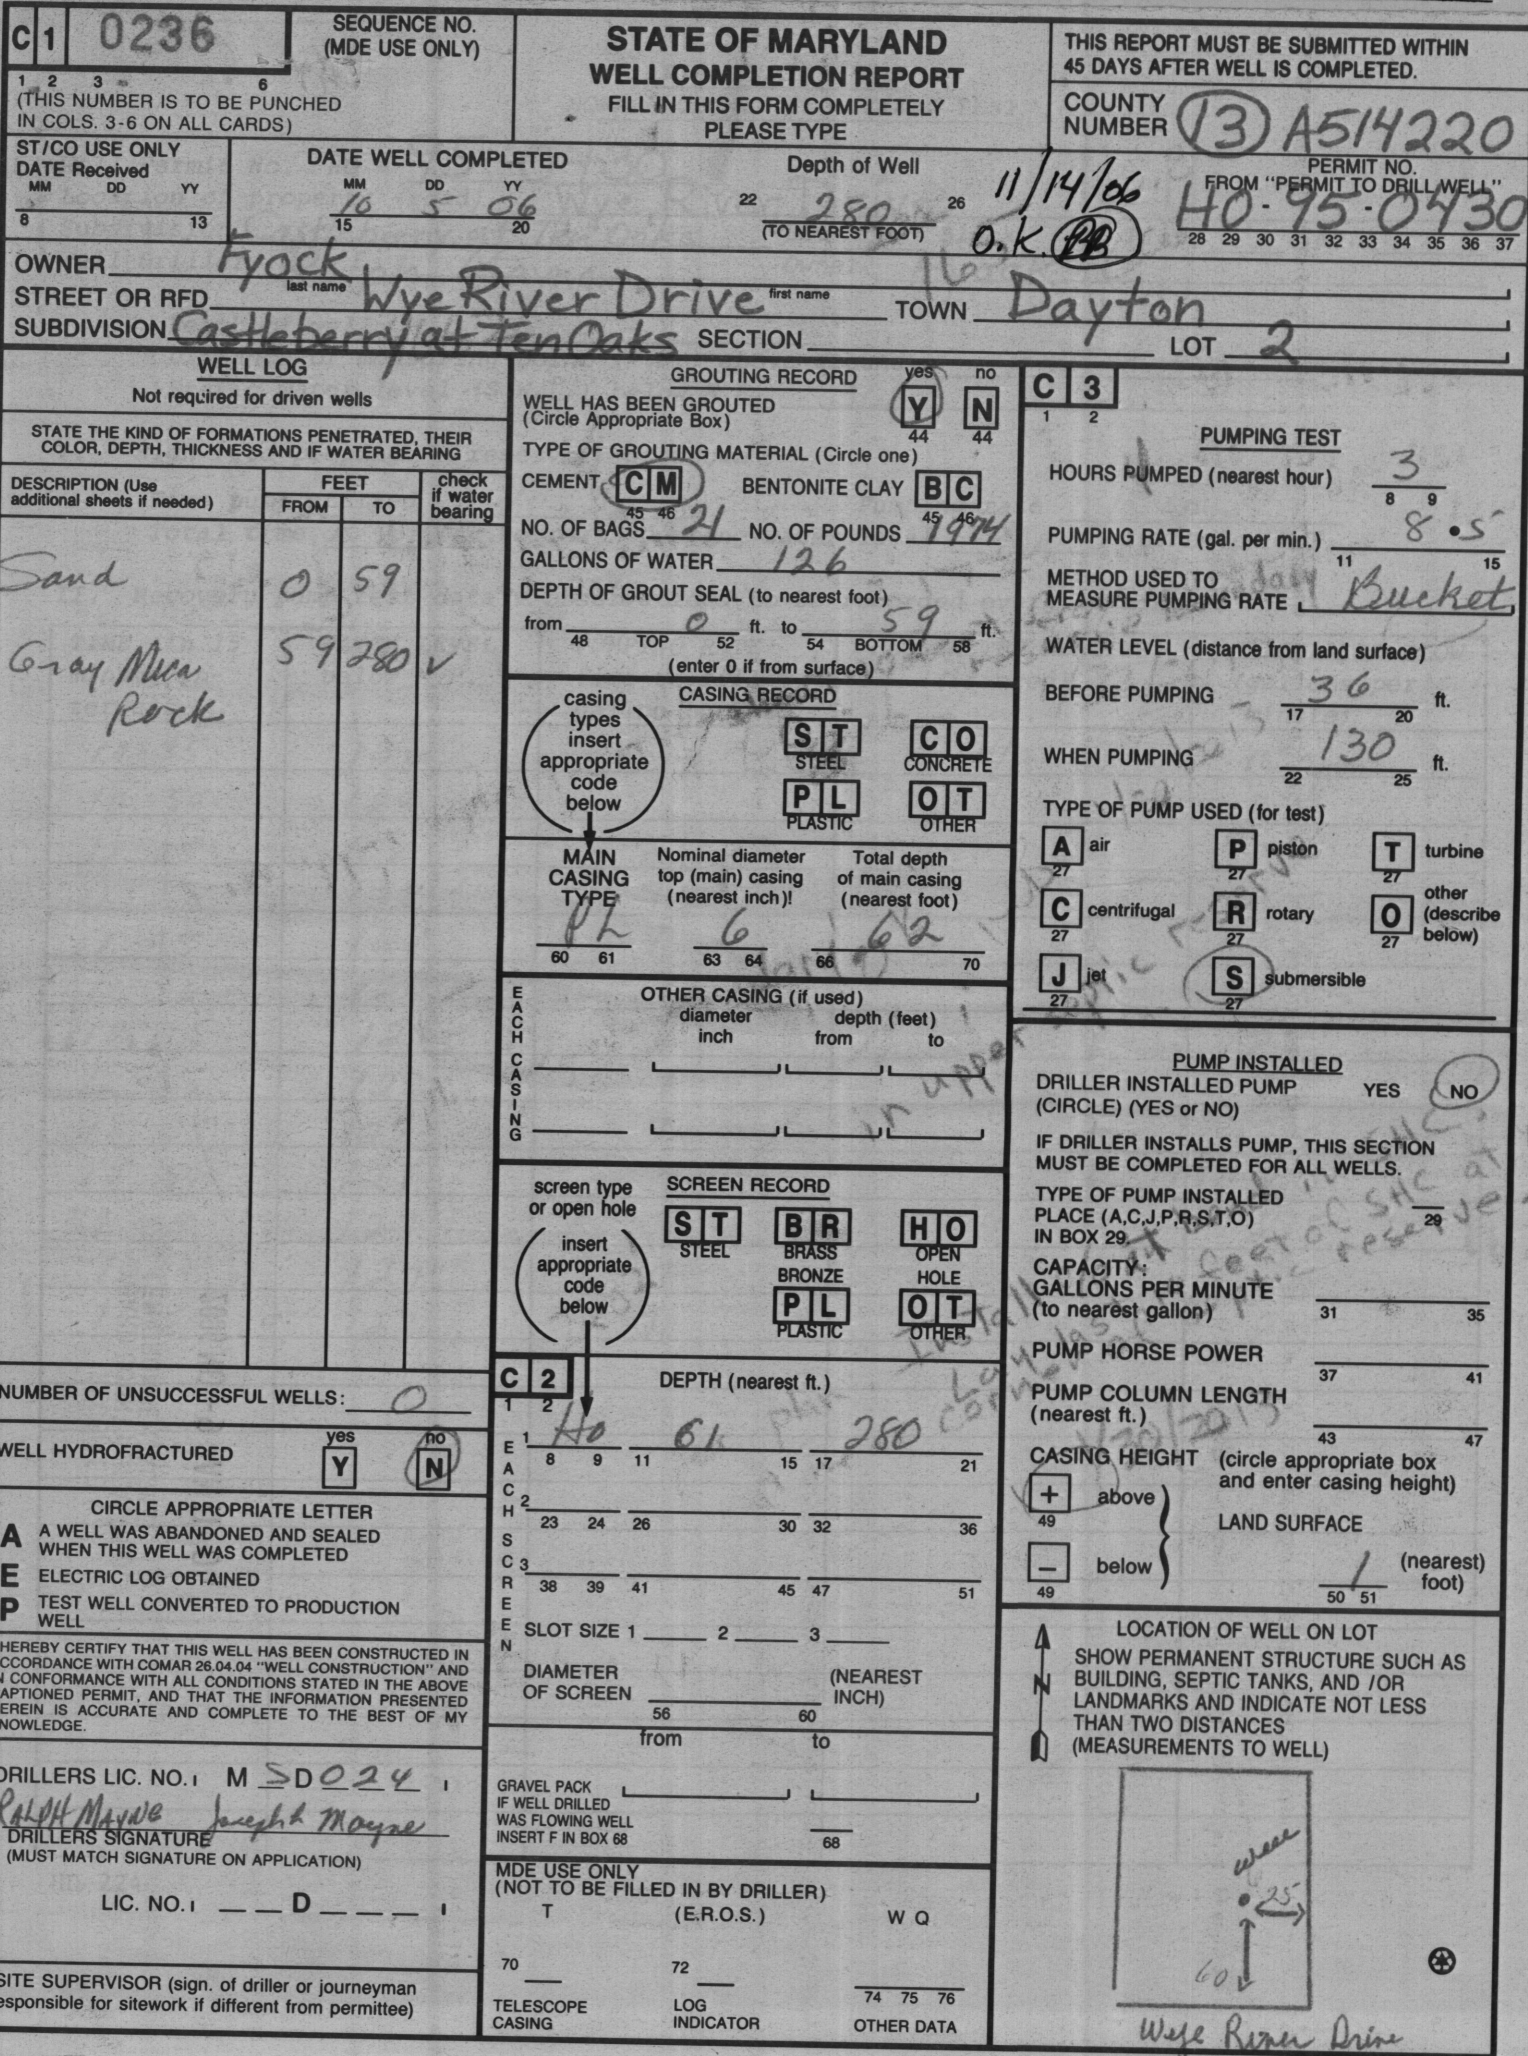 C 1 0236
SEQUENCE NO.
(MDE USE ONLY)
1 2 3 6
(THIS NUMBER IS TO BE PUNCHED
IN COLS. 3-6 ON ALL CARDS)
STATE OF MARYLAND
WELL COMPLETION REPORT
FILL IN THIS FORM COMPLETELY
PLEASE TYPE
THIS REPORT MUST BE SUBMITTED WITHIN
45 DAYS AFTER WELL IS COMPLETED.
COUNTY
NUMBER 13 A514220
ST/CO USE ONLY
DATE Received
MM DD YY
8 13
DATE WELL COMPLETED
MM DD YY
10 5 06
15 20
Depth of Well
22 280 26
(TO NEAREST FOOT)
11/14/06
O.K.
PERMIT NO.
FROM "PERMIT TO DRILL WELL"
HO-95-0430
28 29 30 31 32 33 34 35 36 37
OWNER Fyock
last name first name
STREET OR RFD Wye River Drive TOWN Dayton
SUBDIVISION Castleberry at Ten Oaks SECTION LOT 2
WELL LOG
Not required for driven wells
STATE THE KIND OF FORMATIONS PENETRATED, THEIR
COLOR, DEPTH, THICKNESS AND IF WATER BEARING
DESCRIPTION (Use
additional sheets if needed)
FEET
FROM TO
check
if water
bearing
Sand 0 59
Gray Mica 59 280 ✓
Rock
NUMBER OF UNSUCCESSFUL WELLS: 0
WELL HYDROFRACTURED
yes no
Y N
CIRCLE APPROPRIATE LETTER
A A WELL WAS ABANDONED AND SEALED
WHEN THIS WELL WAS COMPLETED
E ELECTRIC LOG OBTAINED
P TEST WELL CONVERTED TO PRODUCTION
WELL
HEREBY CERTIFY THAT THIS WELL HAS BEEN CONSTRUCTED IN
CCORDANCE WITH COMAR 26.04.04 "WELL CONSTRUCTION" AND
N CONFORMANCE WITH ALL CONDITIONS STATED IN THE ABOVE
APTIONED PERMIT, AND THAT THE INFORMATION PRESENTED
EREIN IS ACCURATE AND COMPLETE TO THE BEST OF MY
NOWLEDGE.
DRILLERS LIC. NO. M S D 0 2 4
RALPH MAYNE Joseph L Mayne
DRILLERS SIGNATURE
(MUST MATCH SIGNATURE ON APPLICATION)
LIC. NO. D
SITE SUPERVISOR (sign. of driller or journeyman
esponsible for sitework if different from permittee)
GROUTING RECORD
yes no
WELL HAS BEEN GROUTED
(Circle Appropriate Box)
Y N
44 44
TYPE OF GROUTING MATERIAL (Circle one)
CEMENT CM BENTONITE CLAY BC
45 46 45 46
NO. OF BAGS 21 NO. OF POUNDS 1974
GALLONS OF WATER 126
DEPTH OF GROUT SEAL (to nearest foot)
from 0 ft. to 59 ft.
48 TOP 52 54 BOTTOM 58
(enter 0 if from surface)
casing
types
insert
appropriate
code
below
CASING RECORD
ST CO
STEEL CONCRETE
PL OT
PLASTIC OTHER
MAIN
CASING
TYPE
Nominal diameter
top (main) casing
(nearest inch)!
Total depth
of main casing
(nearest foot)
PL 6 62
60 61 63 64 66 70
EACH CASING
OTHER CASING (if used)
diameter depth (feet)
inch from to
screen type
or open hole
insert
appropriate
code
below
SCREEN RECORD
ST BR HO
STEEL BRASS OPEN
BRONZE HOLE
PL OT
PLASTIC OTHER
C 2
1 2
DEPTH (nearest ft.)
EACH SCREEN
1 HO 61 280
8 9 11 15 17 21
2
23 24 26 30 32 36
3
38 39 41 45 47 51
SLOT SIZE 1 2 3
DIAMETER
OF SCREEN
(NEAREST
INCH)
56 60
from to
GRAVEL PACK
IF WELL DRILLED
WAS FLOWING WELL
INSERT F IN BOX 68
68
MDE USE ONLY
(NOT TO BE FILLED IN BY DRILLER)
T (E.R.O.S.) W Q
70 72
74 75 76
TELESCOPE
CASING
LOG
INDICATOR
OTHER DATA
C 3
1 2
PUMPING TEST
HOURS PUMPED (nearest hour) 3
8 9
PUMPING RATE (gal. per min.) 8.5
11 15
METHOD USED TO
MEASURE PUMPING RATE Bucket
WATER LEVEL (distance from land surface)
BEFORE PUMPING 36 ft.
17 20
WHEN PUMPING 130 ft.
22 25
TYPE OF PUMP USED (for test)
A air P piston T turbine
27 27 27
C centrifugal R rotary O other
(describe
below)
27 27 27
J jet S submersible
27 27
PUMP INSTALLED
DRILLER INSTALLED PUMP YES NO
(CIRCLE) (YES or NO)
IF DRILLER INSTALLS PUMP, THIS SECTION
MUST BE COMPLETED FOR ALL WELLS.
TYPE OF PUMP INSTALLED
PLACE (A,C,J,P,R,S,T,O)
IN BOX 29.
29
CAPACITY:
GALLONS PER MINUTE
(to nearest gallon)
31 35
PUMP HORSE POWER
37 41
PUMP COLUMN LENGTH
(nearest ft.)
43 47
CASING HEIGHT (circle appropriate box
and enter casing height)
+ above
49
LAND SURFACE
− below
49
1 (nearest
foot)
50 51
LOCATION OF WELL ON LOT
N
SHOW PERMANENT STRUCTURE SUCH AS
BUILDING, SEPTIC TANKS, AND /OR
LANDMARKS AND INDICATE NOT LESS
THAN TWO DISTANCES
(MEASUREMENTS TO WELL)
well
25
60
Wye River Drive